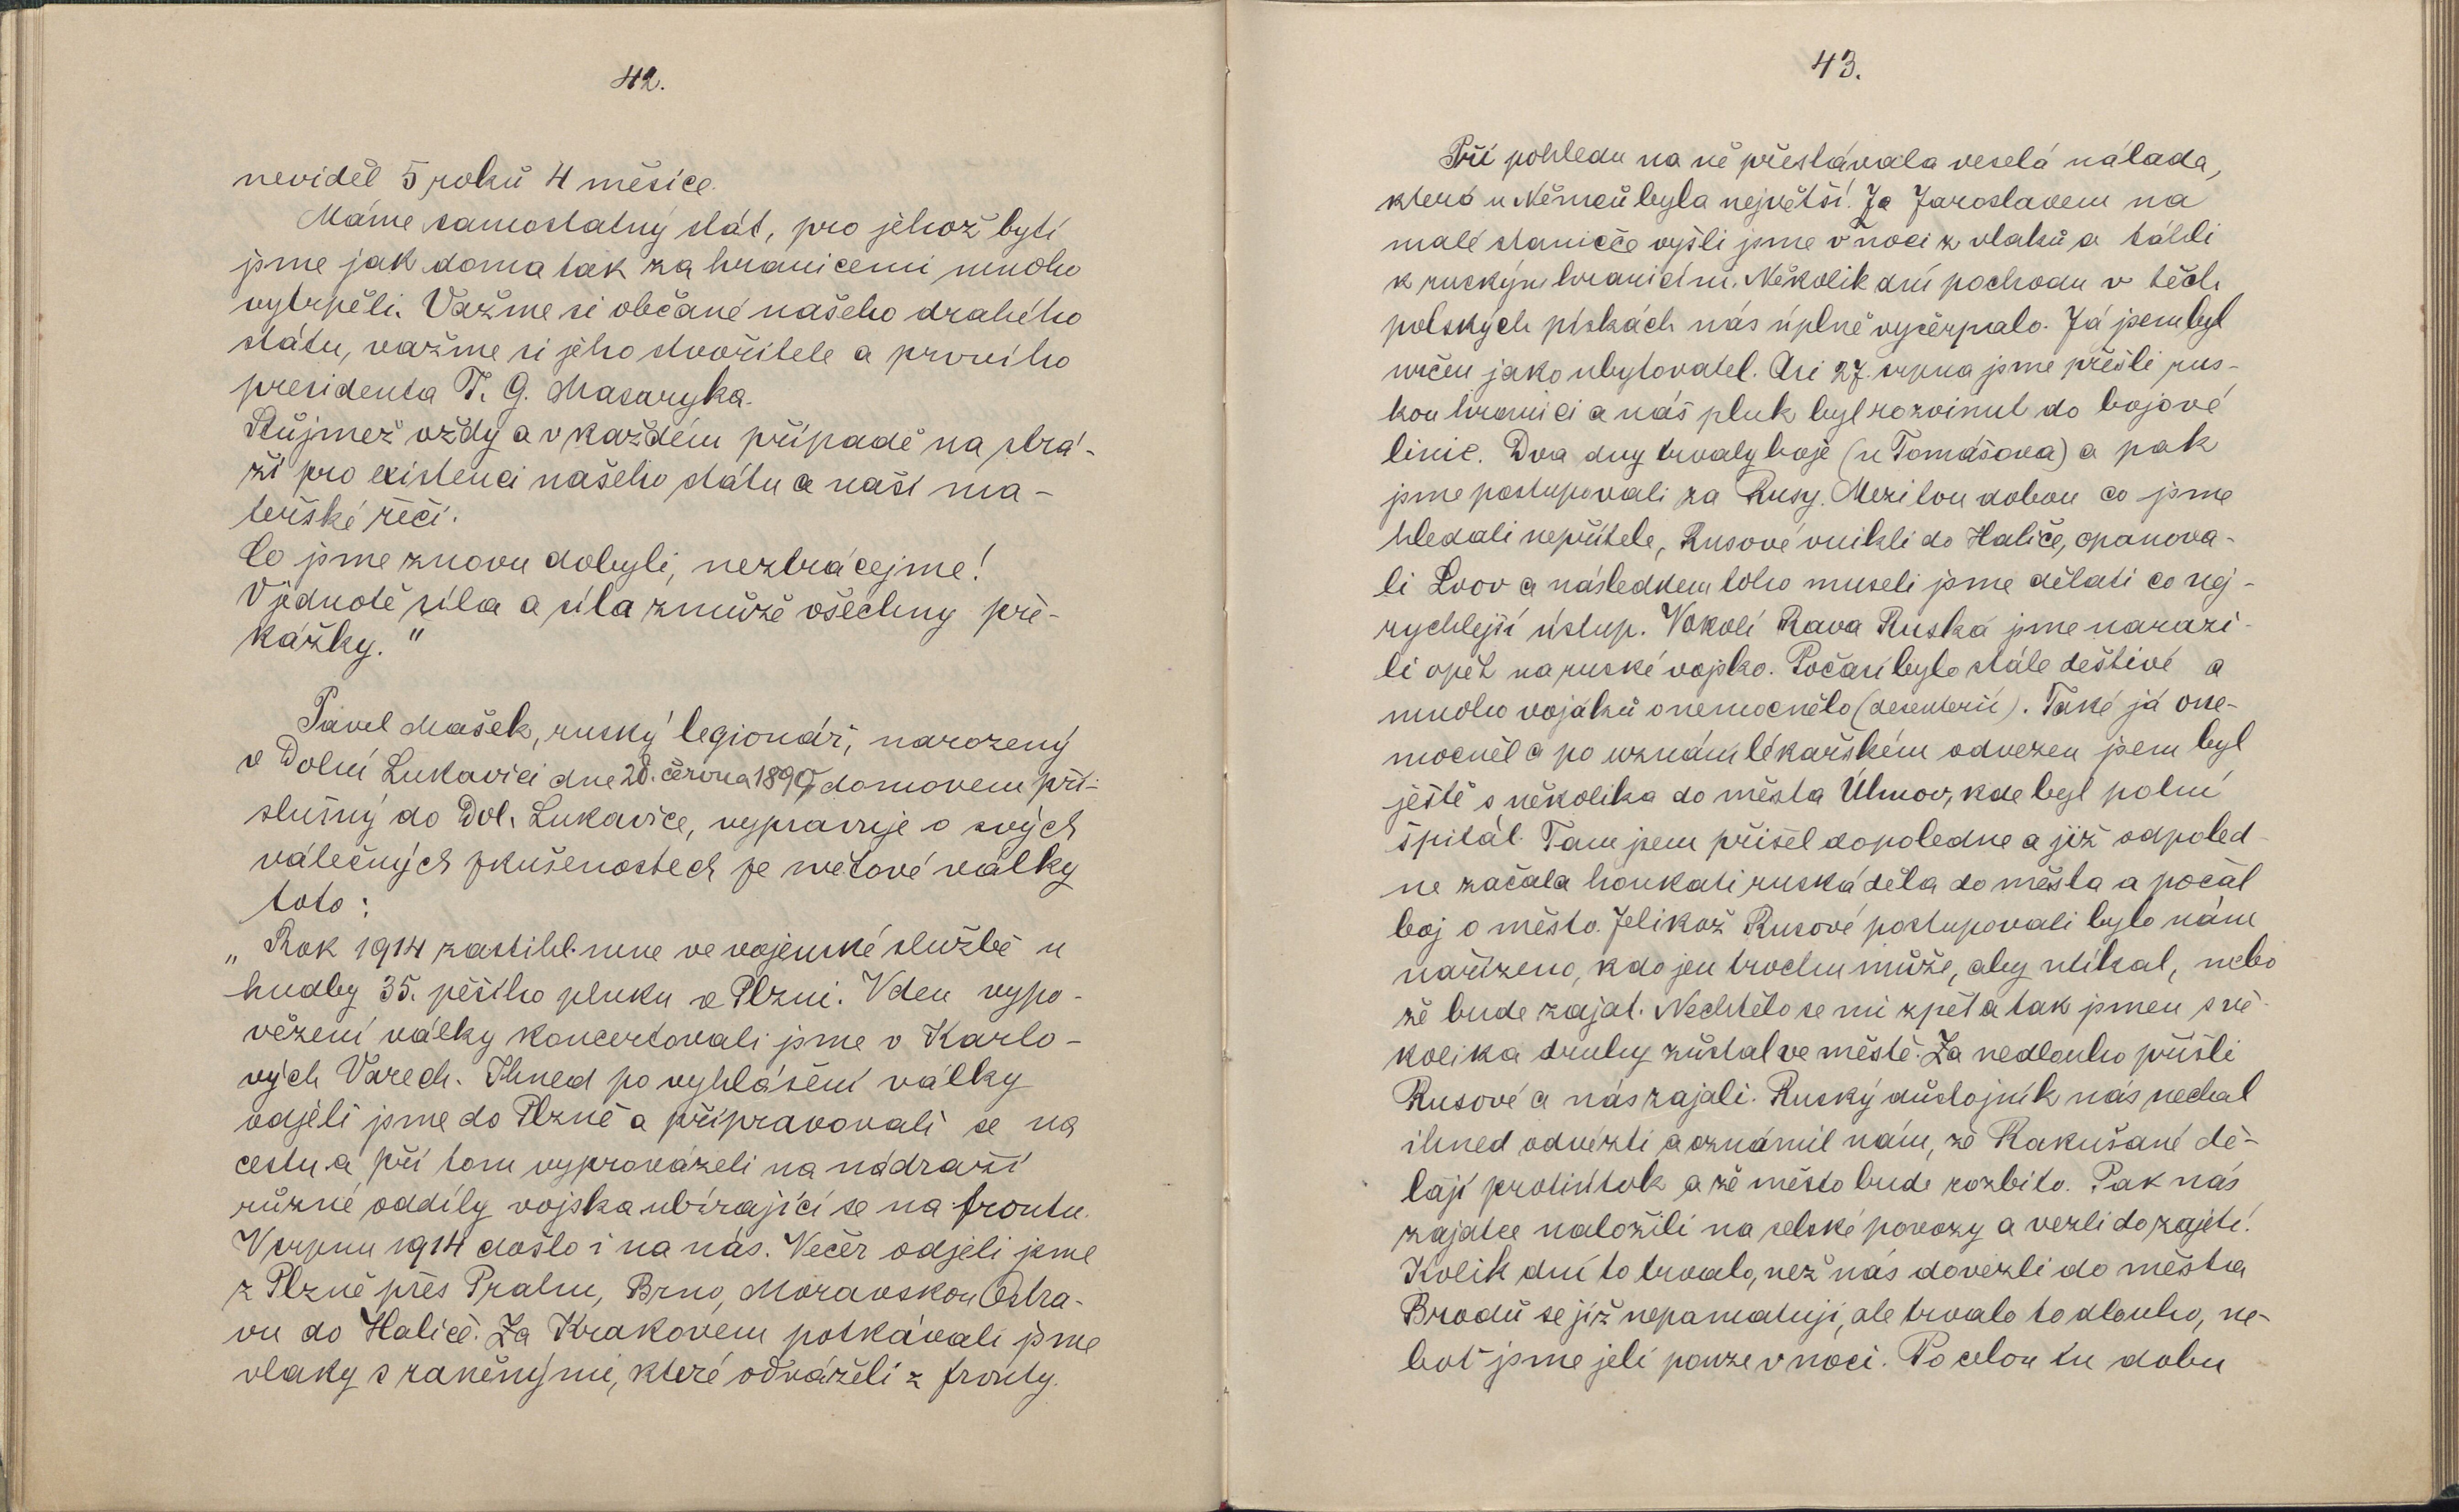 42.
neviděl 5 roků 4 měsíce.
Máme samostatný stát, pro jehož bytí
jsme jak doma tak za hranicemi mnoho
vytrpěli. Važme si občané našeho drahého
státu, važme si jeho stvořitele a prvního
presidenta T. G. Masaryka.
Stůjmež vždy a v každém případě na strá-
ži pro existenci našeho státu a naší ma-
teřské řeči.
Co jsme znovu dobyli, neztrácejme!
V jednotě síla a síla zmůže všechny pře-
kážky."
Pavel Mašek, ruský legionář, narozený
v Dolní Lukavici dne 28. června 1890, domovem pří-
slušný do Dol. Lukavice, vypravuje o svých
válečných zkušenostech ze světové války
toto:
„Rok 1914 zastihl mne ve vojenské službě u
hudby 35. pěšího pluku v Plzni. V den vypo-
vězení války koncertovali jsme v Karlo-
vých Varech. Ihned po vyhlášení války
odjeli jsme do Plzně a připravovali se na
cestu a při tom vyprovázeli na nádraží
různé oddíly vojska ubírající se na frontu.
V srpnu 1914 došlo i na nás. Večer odjeli jsme
z Plzně přes Prahu, Brno, Moravskou Ostra-
vu do Haliče. Za Krakovem potkávali jsme
vlaky s raněnými, které odváželi z fronty.
43.
Při pohledu na ně přestávala veselá nálada,
která u Němců byla největší. Za Jaroslavem na
malé staničce vyšli jsme v noci z vlaků a táhli
k ruským hranicím. Několik dní pochodu v těch
polských pískách nás úplně vyčerpalo. Já jsem byl
určen jako ubytovatel. Asi 27. srpna jsme přešli rus-
kou hranici a náš pluk byl rozvinut do bojové
linie. Dva dny trvaly boje (u Tomášova) a pak
jsme postupovali za Rusy. Mezi tou dobou co jsme
hledali nepřítele, Rusové vnikli do Haliče, opanova-
li Lvov a následkem toho museli jsme dělati co nej-
rychlejší ústup. V okolí Rava Ruská jsme narazi-
li opět na ruské vojsko. Počasí bylo stále deštivé a
mnoho vojáků onemocnělo (desenterií). Také já one-
mocněl a po uznání lékařském odvezen jsem byl
ještě s několika do města Úhnov, kde byl polní
špitál. Tam jsem přišel dopoledne a již odpoled-
ne začala houkati ruská děla do města a počal
boj o město. Jelikož Rusové postupovali bylo nám
nařízeno, kdo jen trochu může, aby utíkal, nebo
že bude zajat. Nechtělo se mi zpět a tak jsmeu s ně-
kolika druhy zůstal ve městě. Za nedlouho přišli
Rusové a nás zajali. Ruský důstojník nás nechal
ihned odvézti a oznámil nám, že Rakušané dě-
lají protiútok a že město bude rozbito. Pak nás
zajatce naložili na selské povozy a vezli do zajetí.
Kolik dní to trvalo, než nás dovezli do města
Brodů se již nepamatuji, ale trvalo to dlouho, ne-
boť jsme jeli pouze v noci. Po celou tu dobu